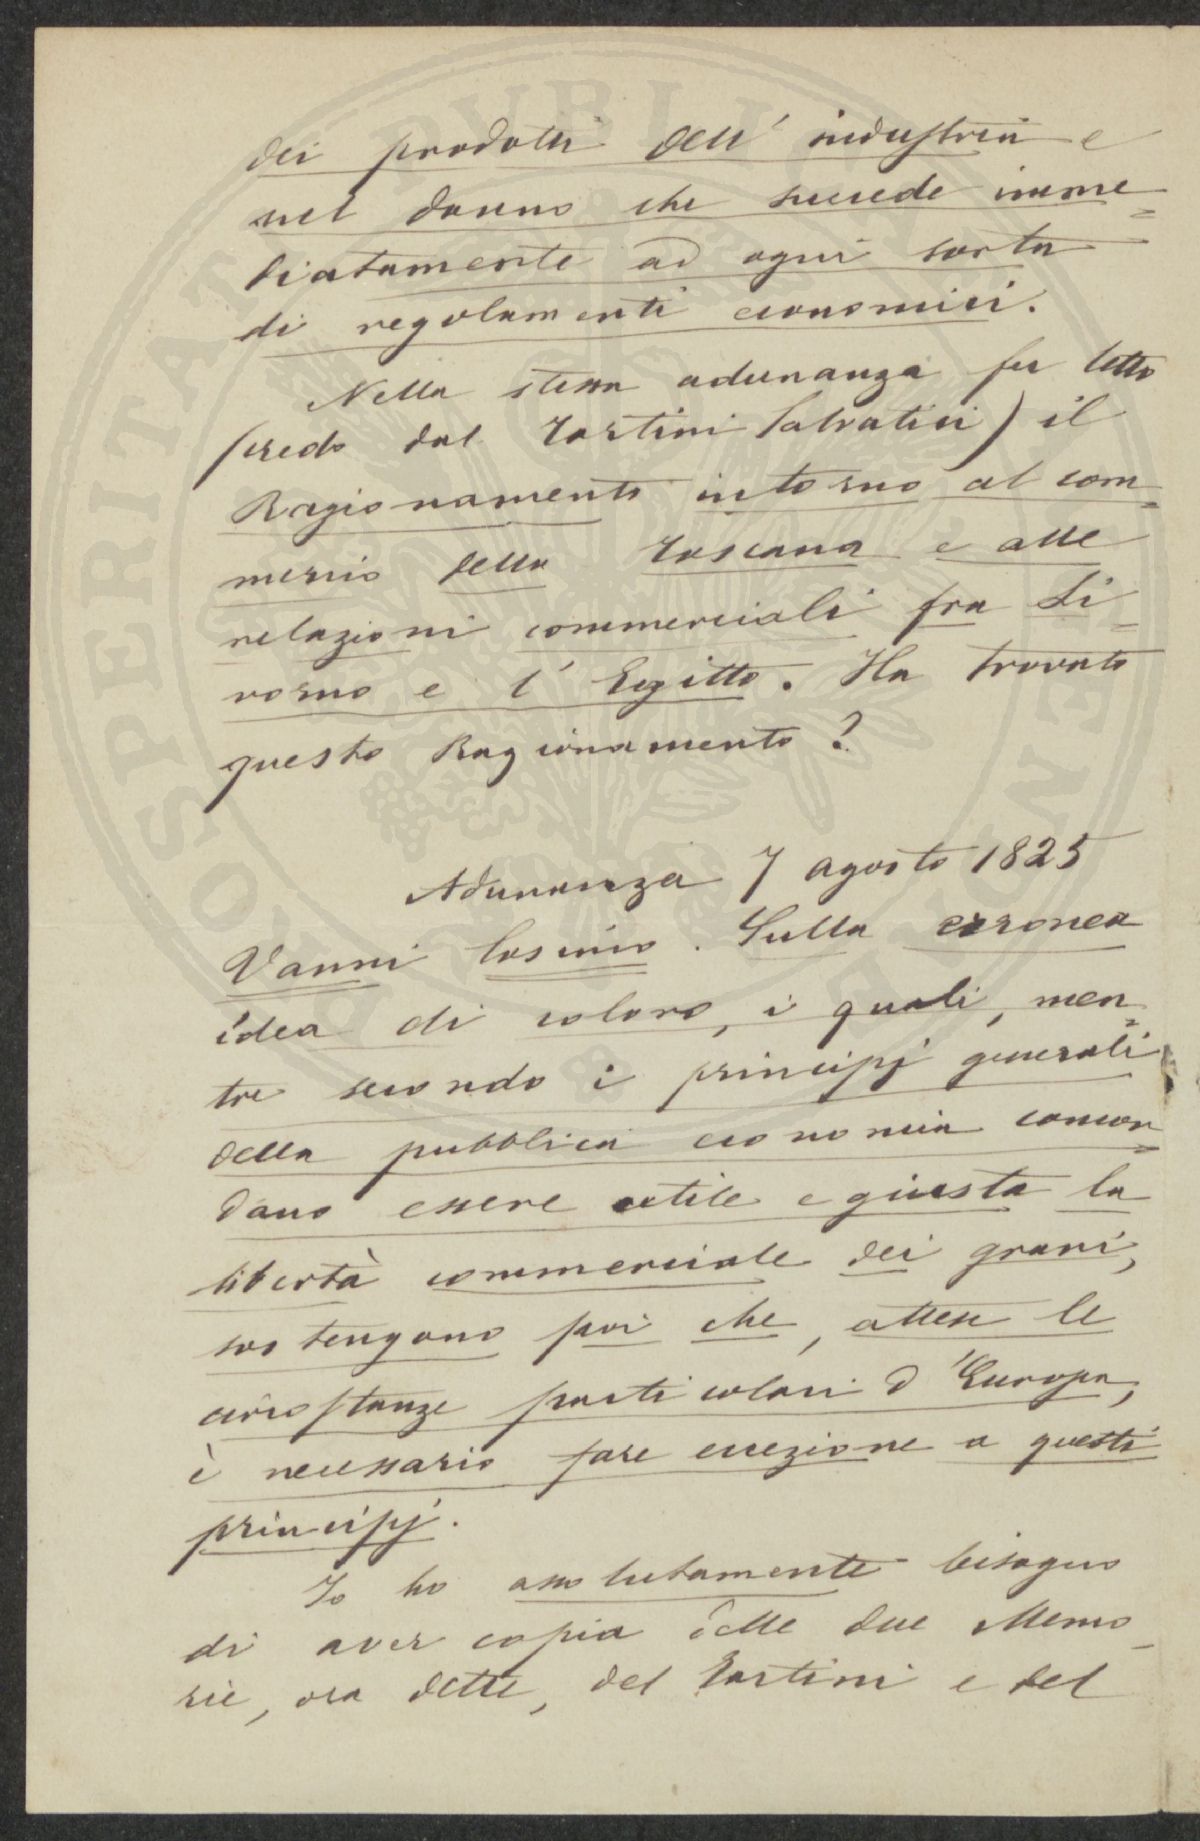 dei prodotti dell' industria e
nel danno che succede imme=
diatamente ad ogni sorta
di regolamenti economici.
Nella stessa adunanza fu letto
(credo dal Tartini Salvatici) il
Ragionamento intorno al com=
mercio della Toscana e alle
relazioni commerciali fra Li=
vorno e l' Egitto. Ha trovato
questo Ragionamento?
Adunanza 7 agosto 1825
Vanni Cosimo. Sulla erronea
idea di coloro, i quali, men=
tre secondo i principj generali
della pubblica economia concor=
dano essere utile e giusta la
libertà commerciale dei grani,
sostengono poi che, attese le
circostanze particolari d'Europa,
è necessario fare eccezione a questi
principj.
Io ho assolutamente bisogno
di aver copia delle due Memo-
rie, ora dette, del Tartini e del
PROSPERITATI PVBLICAE